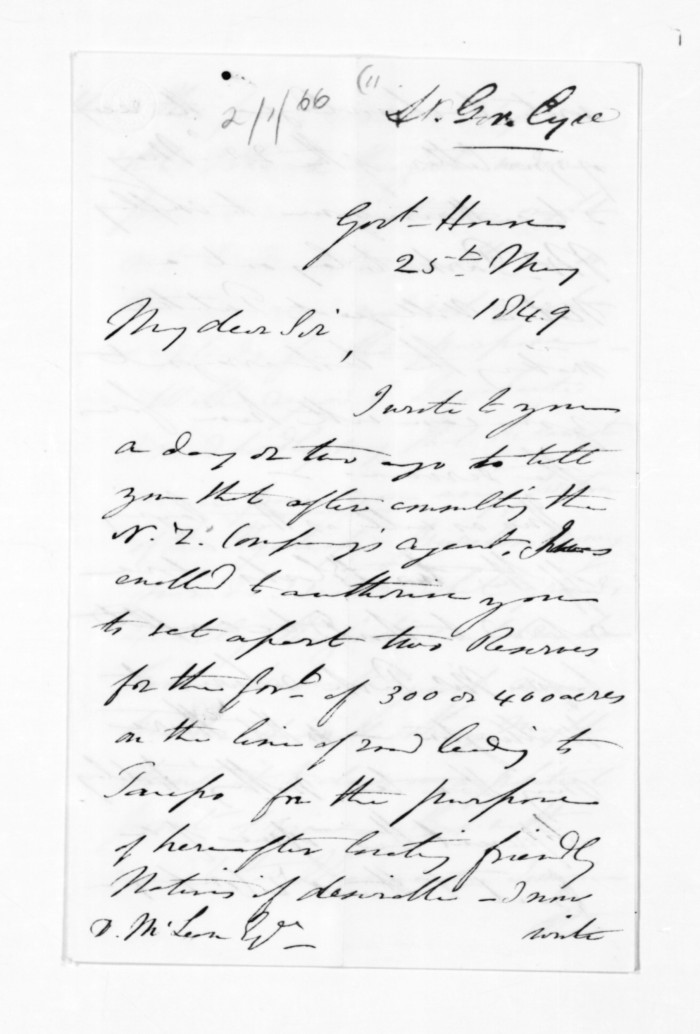 2/1/66 (11
Lt. Gov. Eyre
Govt. House
25th May
1849
My dear Sir,
I wrote to you
a day or two ago to tell
you that after consulting the
N. Z. Company's agent, I was
enabled to authorise you
to set apart two Reserves
for the Govt. of 300 or 400 acres
on the line of road leading to
Taupo for the purpose
of hereafter locating friendly
Natives if desirable - I now
D. McLean Esqr. write